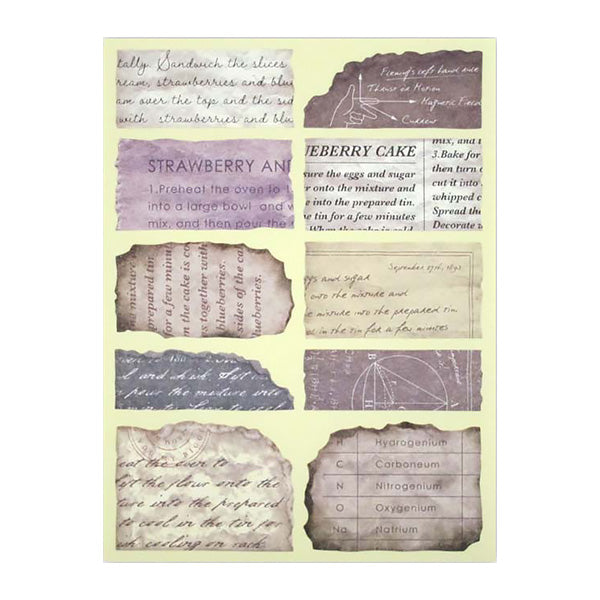 tally. Sandwich the slices
ream, strawberries and blu
am over the top and the sid
with strawberries and blu
Fleming's left hand rule
Thrust or Motion
Magnetic Field
Current
STRAWBERRY AN
1.Preheat the oven to 1
into a large bowl and w
mix, and then pour the
UEBERRY CAKE
sure the eggs and sugar
r onto the mixture and
into the prepared tin.
he tin for a few minutes
When the cake is cold
mix, and t
3.Bake for
then turn o
cut it into
whipped c
Spread the
Decorate w
he mixture o
prepared tin.
for a few minu
n the cake is co
together with
blueberries.
sides of the c
blueberries.
September 27th, 1892
ggs and sugar
onto the mixture and
mixture into the prepared tin
e in the tin for a few minutes
l and whisk. Sift
pour the mixture into
t. Leave to cool in the
B
A
H
eat the oven to
ft the flour onto the
ture into the prepared
to cool in the tin for
sh cooling on rack.
H Hydrogenium
C Carboneum
N Nitrogenium
O Oxygenium
Na Natrium